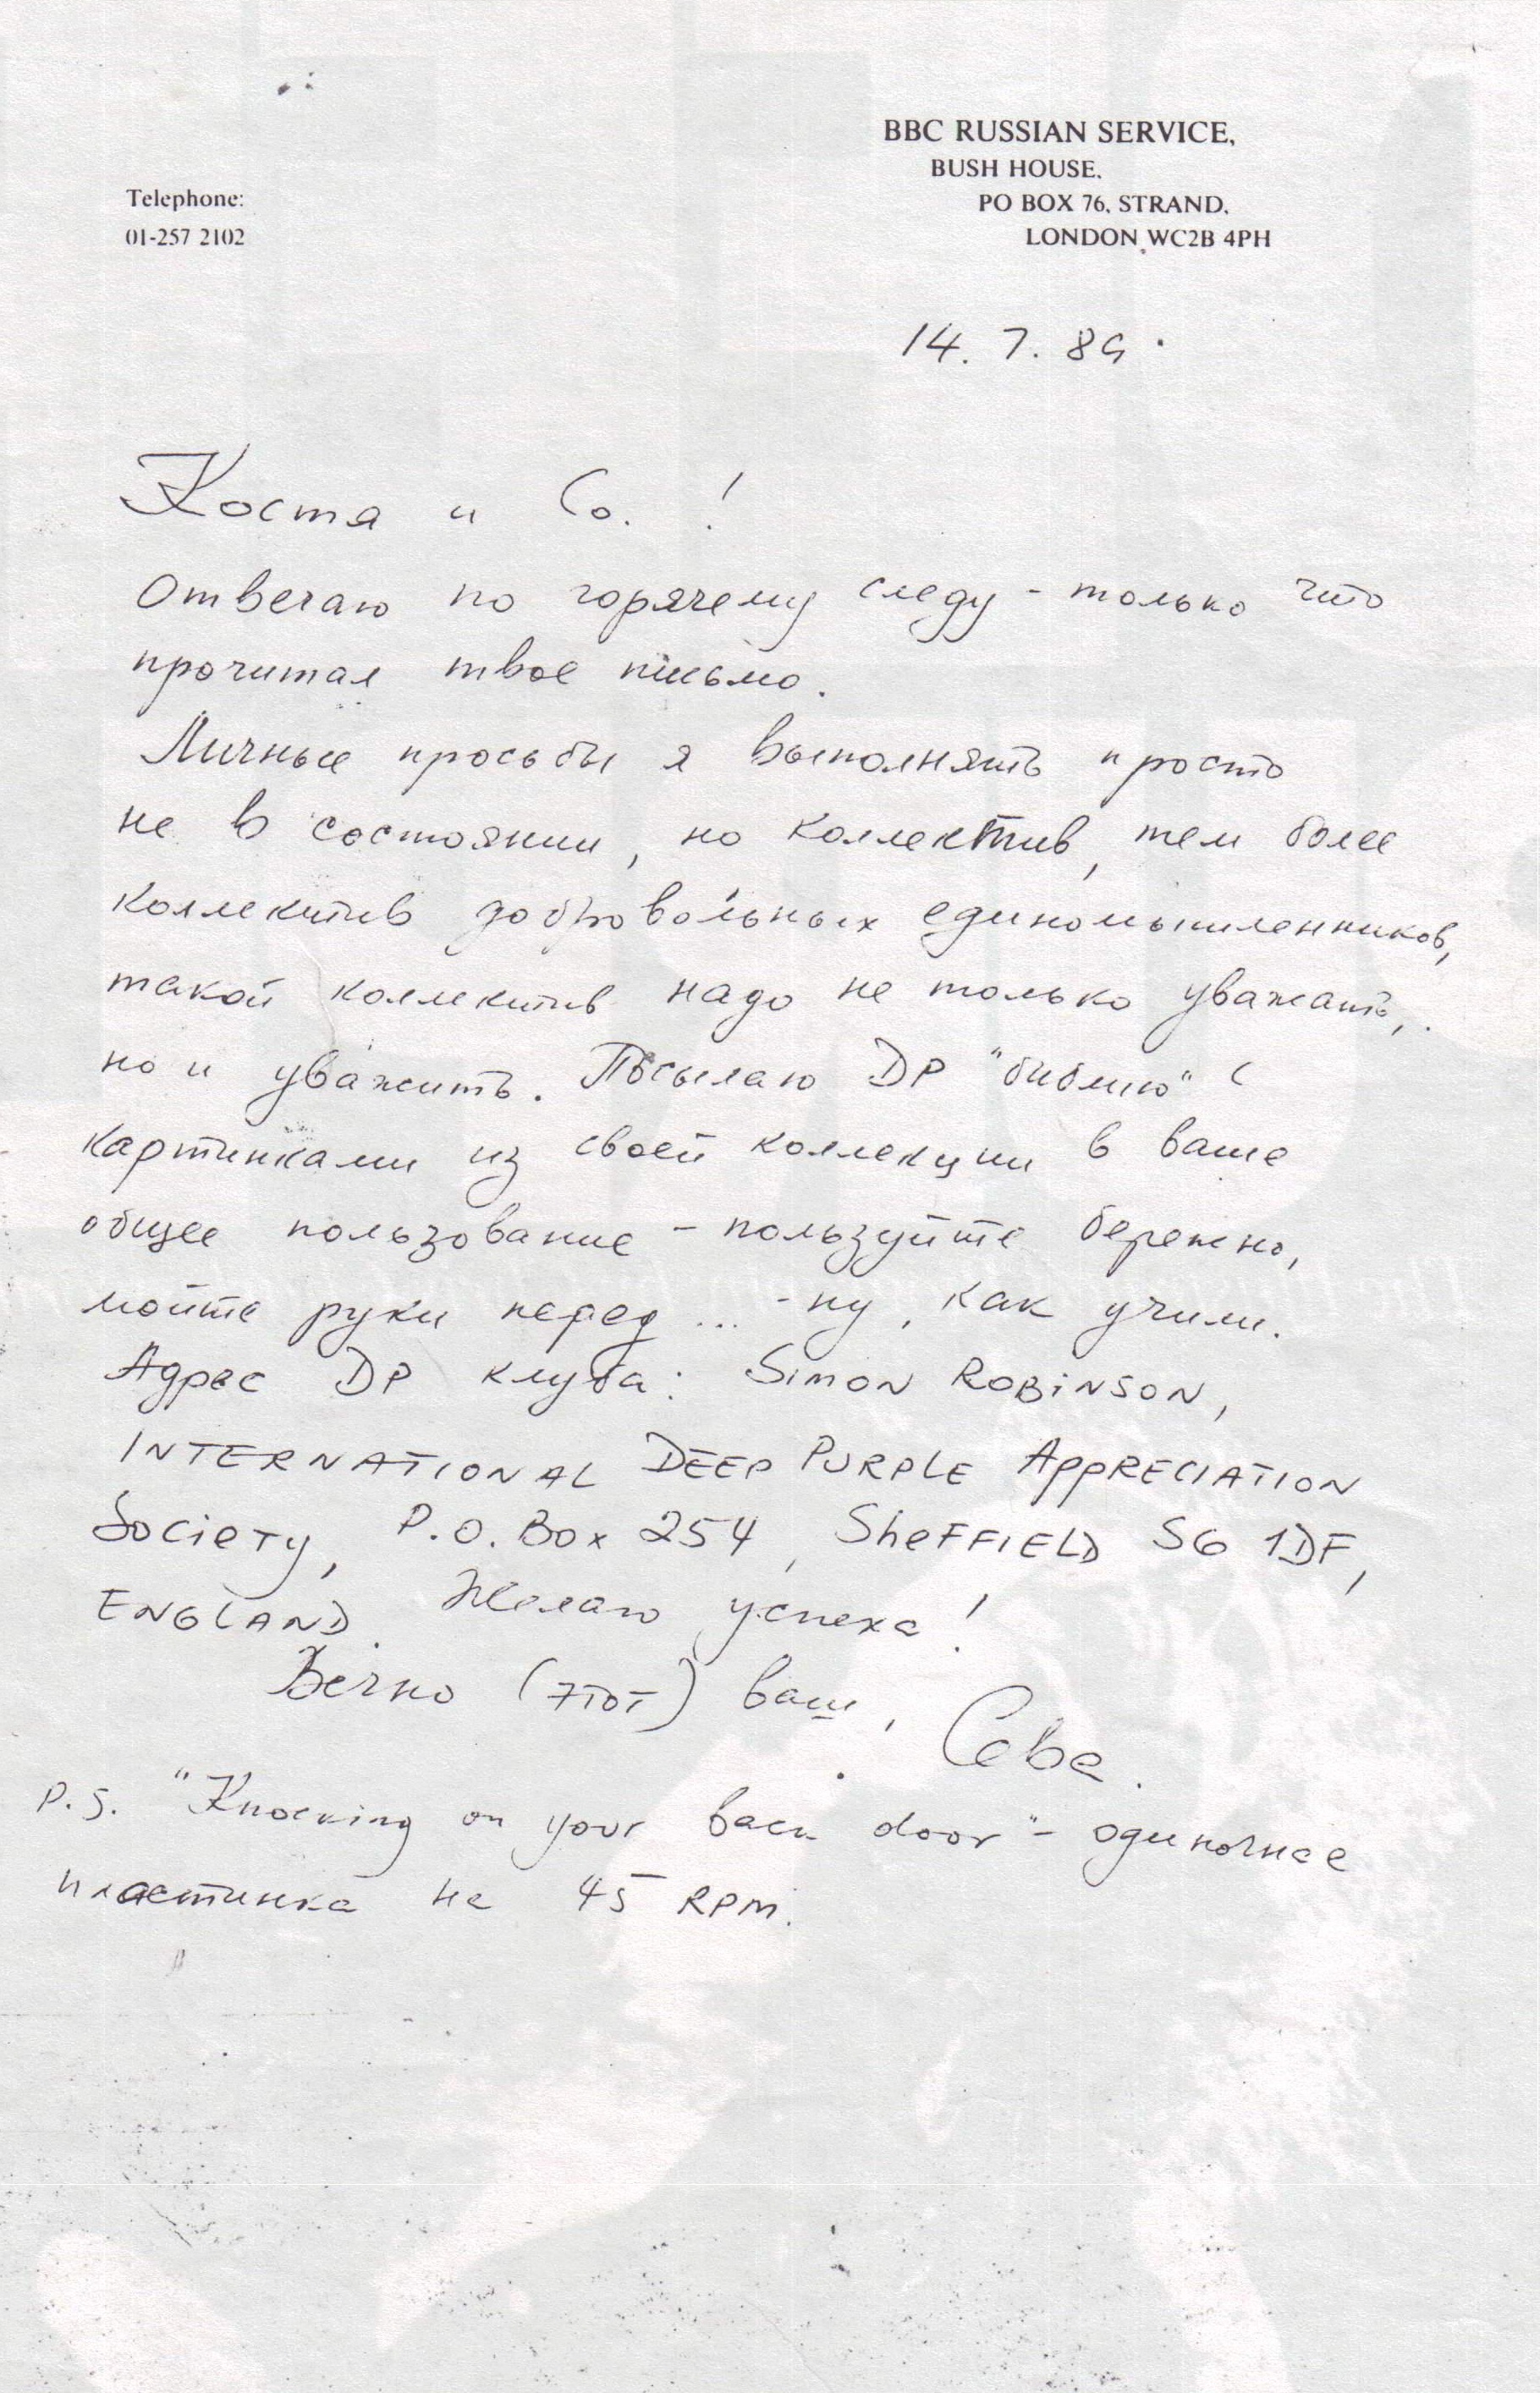 BBC RUSSIAN SERVICE,
BUSH HOUSE,
PO BOX 76, STRAND,
LONDON WC2B 4PH
Telephone:
01-257 2102
14. 7. 89.
Костя и Co. !
Отвечаю по горячему следу - только что
прочитал твое письмо.
Личные просьбы я выполнять просто
не в состоянии, но коллектив, тем более
коллектив добровольных единомышленников,
такой коллектив надо не только уважать,
но и уважить. Посылаю DP "библию" с
картинками из своей коллекции в ваше
общее пользование - пользуйте бережно,
мойте руки перед ... - ну, как учили.
Адрес DP клуба: SIMON ROBINSON,
INTERNATIONAL DEEP PURPLE APPRECIATION
SOCIETY, P.O. BOX 254, SHEFFIELD S6 1DF,
ENGLAND. Желаю успеха!
Вечно (тот) ваш, Сева.
P.S. "Knocking on your back door" - одиночная
пластинка на 45 RPM.